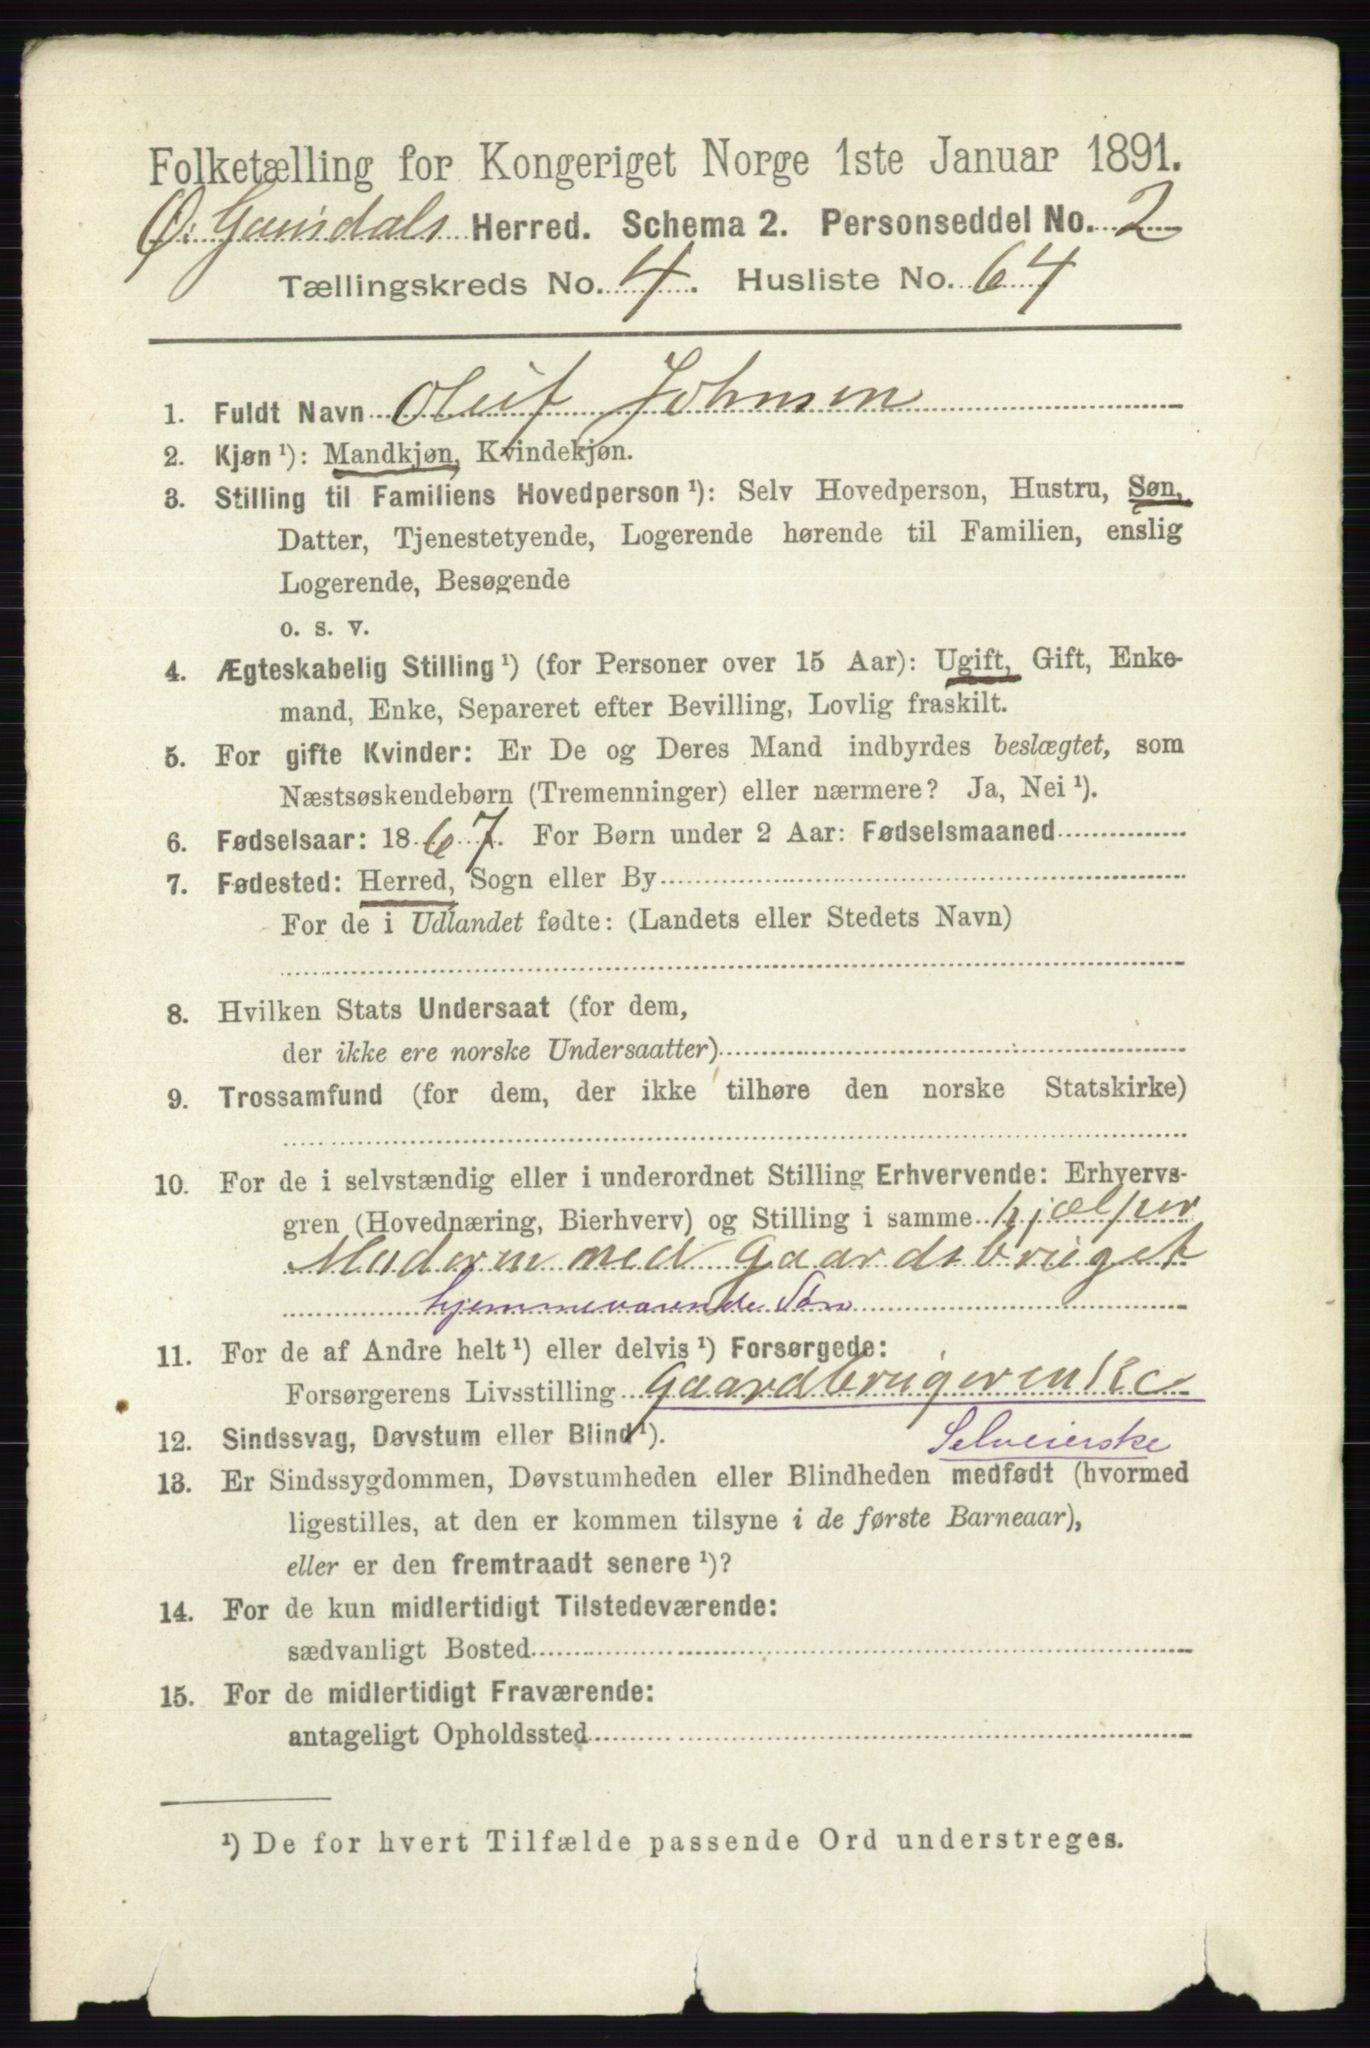 Folketælling for Kongeriget Norge 1ste Januar 1891.
Ø. Gausdals Herred. Schema 2. Personseddel No. 2
Tællingskreds No. 4. Husliste No. 64
1. Fuldt Navn Oluf Johnsen
2. Kjøn ¹): Mandkjøn, Kvindekjøn.
3. Stilling til Familiens Hovedperson ¹): Selv Hovedperson, Hustru, Søn,
Datter, Tjenestetyende, Logerende hørende til Familien, enslig
Logerende, Besøgende
o. s. v.
4. Ægteskabelig Stilling ¹) (for Personer over 15 Aar): Ugift, Gift, Enke-
mand, Enke, Separeret efter Bevilling, Lovlig fraskilt.
5. For gifte Kvinder: Er De og Deres Mand indbyrdes beslægtet, som
Næstsøskendebørn (Tremenninger) eller nærmere? Ja, Nei ¹).
6. Fødselsaar: 1867. For Børn under 2 Aar: Fødselsmaaned
7. Fødested: Herred, Sogn eller By
For de i Udlandet fødte: (Landets eller Stedets Navn)
8. Hvilken Stats Undersaat (for dem,
der ikke ere norske Undersaatter)
9. Trossamfund (for dem, der ikke tilhøre den norske Statskirke)
10. For de i selvstændig eller i underordnet Stilling Erhvervende: Erhvervs-
gren (Hovednæring, Bierhverv) og Stilling i samme hjælper
Moderen med Gaardsbruget
hjemmeværende Søn
11. For de af Andre helt ¹) eller delvis ¹) Forsørgede:
Forsørgerens Livsstilling Gaardbruger
Selveierske
12. Sindssvag, Døvstum eller Blind ¹).
13. Er Sindssygdommen, Døvstumheden eller Blindheden medfødt (hvormed
ligestilles, at den er kommen tilsyne i de første Barneaar),
eller er den fremtraadt senere ¹)?
14. For de kun midlertidigt Tilstedeværende:
sædvanligt Bosted
15. For de midlertidigt Fraværende:
antageligt Opholdssted
¹) De for hvert Tilfælde passende Ord understreges.